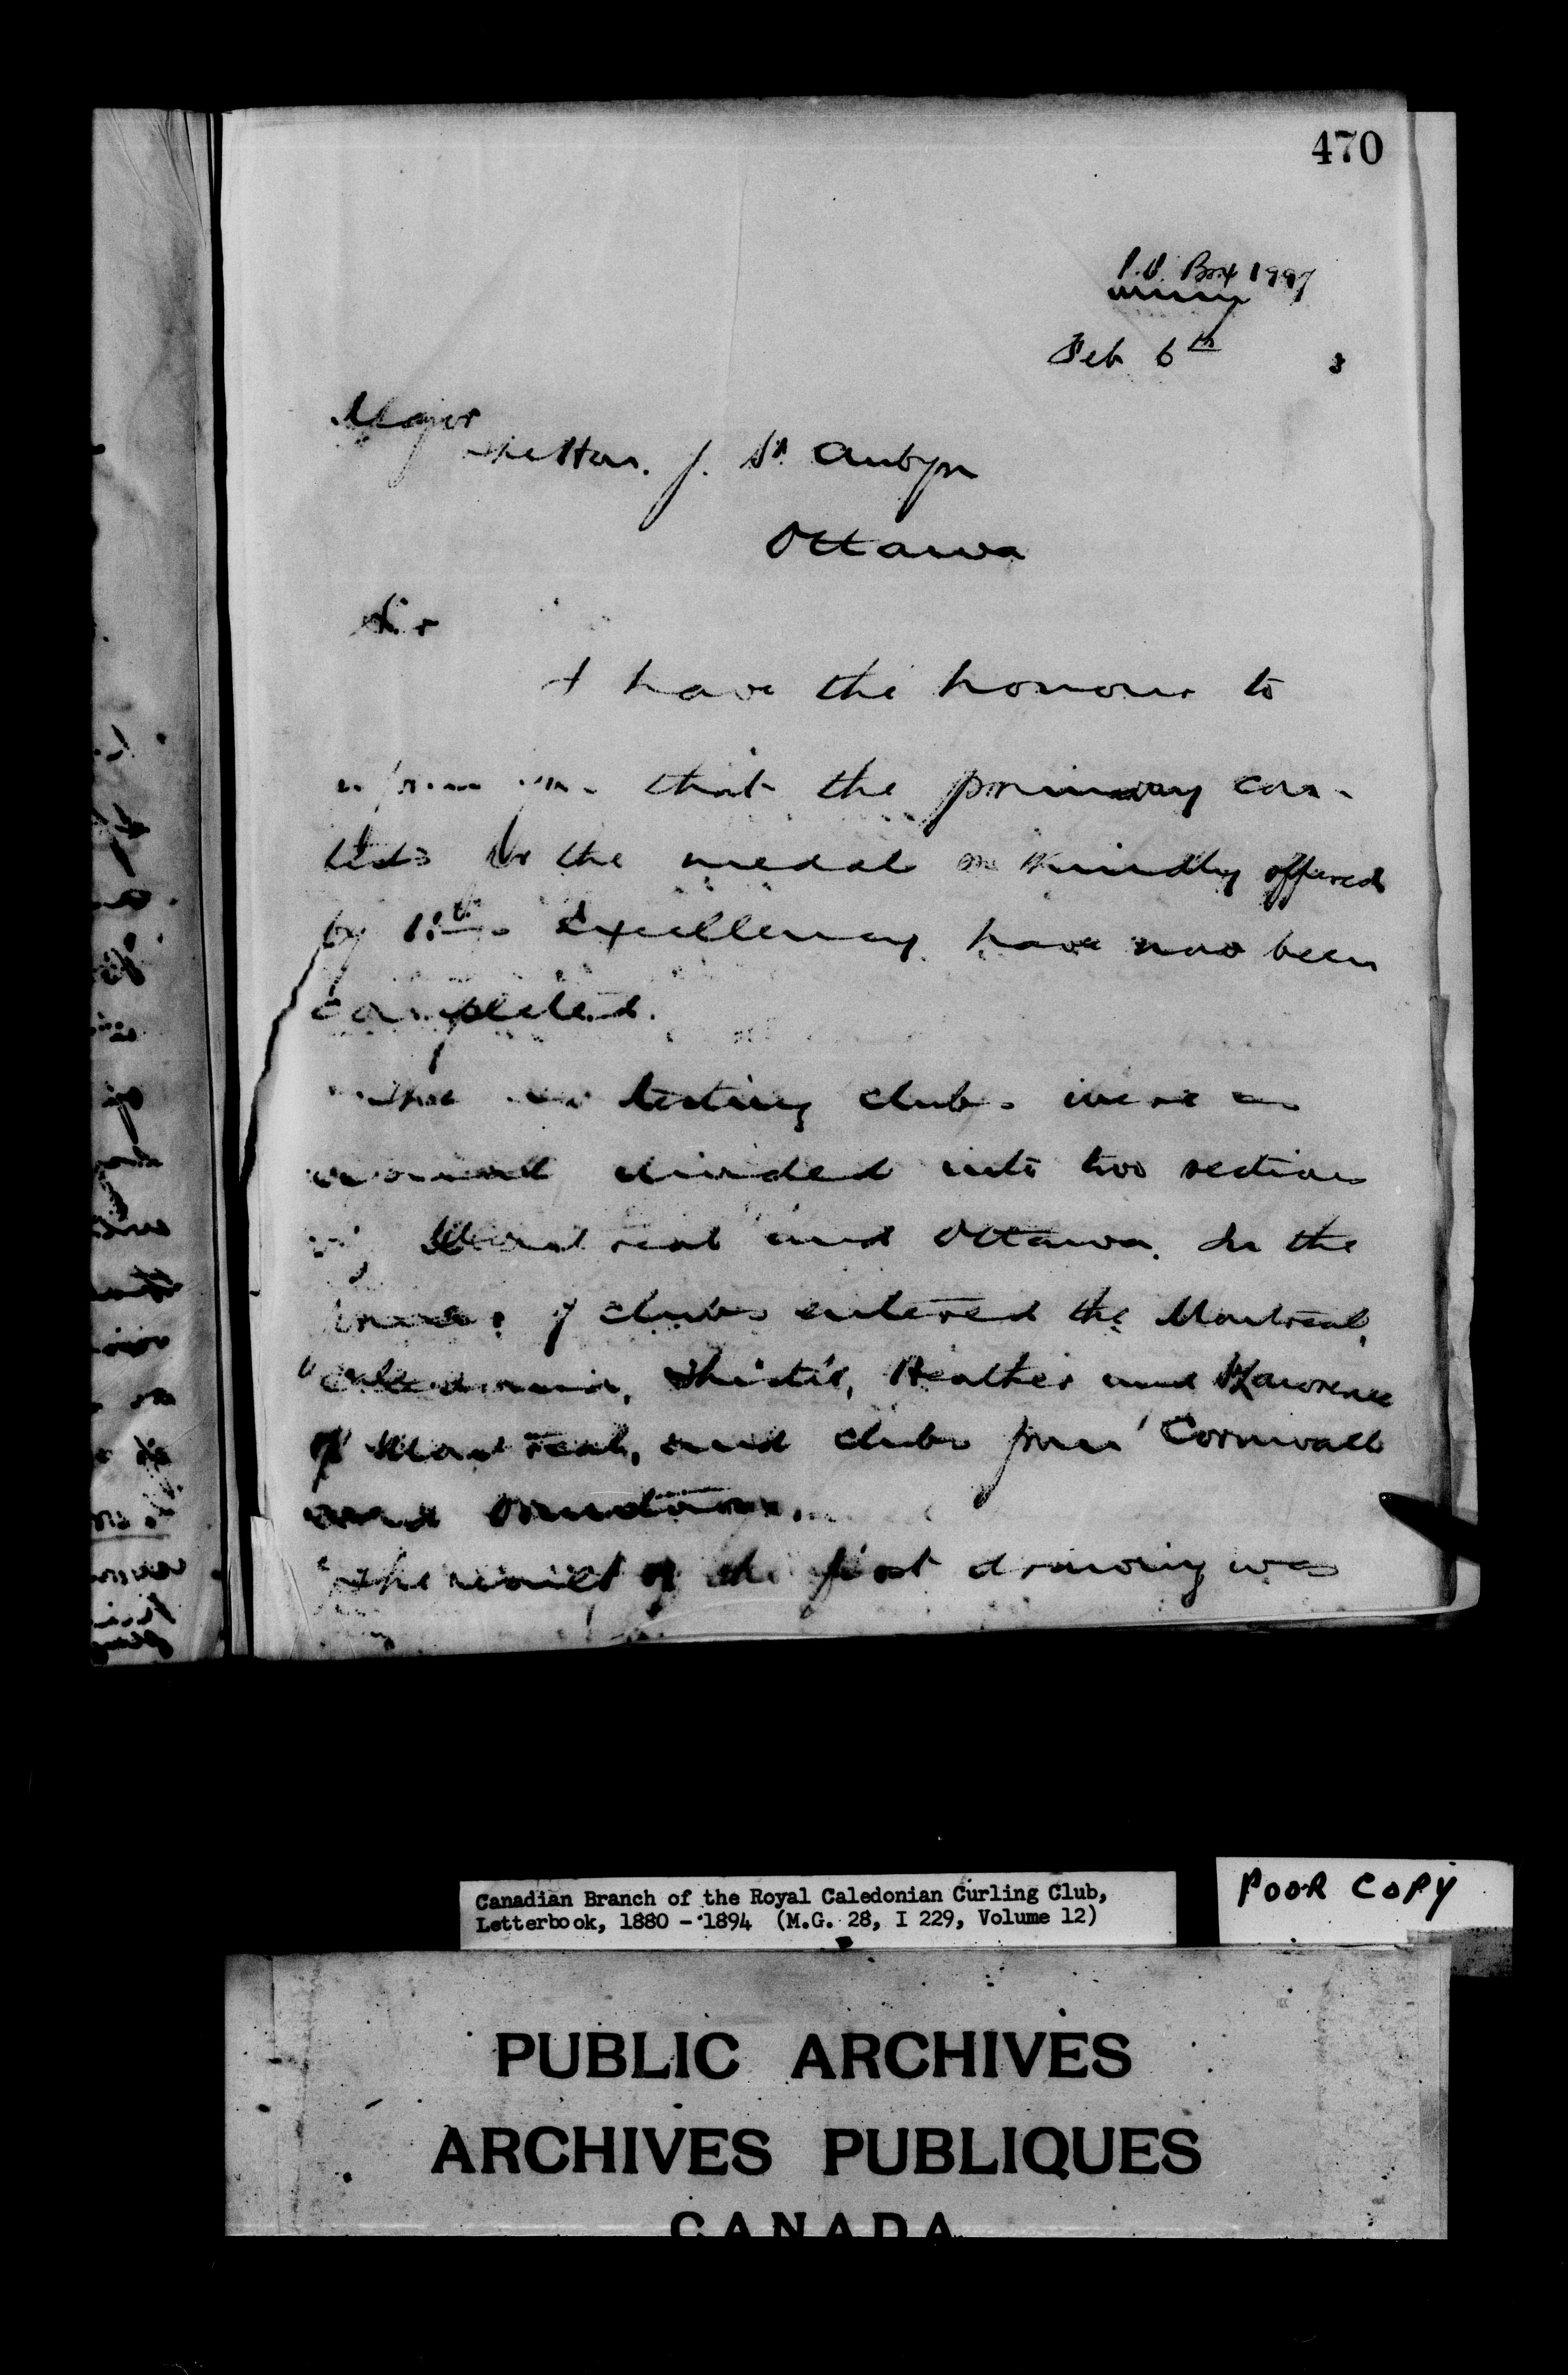 470
P.O. Box 1997
Feb 6th 3
Major
The Hon. J. St. Aubyn
Ottawa
Sir
I have the honour to
inform you that the primary con-
tests for the medal so kindly offered
by His Excellency have now been
completed.
The contesting clubs were as
usual divided into two sections
viz Montreal and Ottawa. In the
of clubs entered the Montreal,
Caledonia, Thistle, Heather and St Lawrence
of Montreal, and clubs from Cornwall
and
The result of the first drawing was
Canadian Branch of the Royal Caledonian Curling Club,
Letterbook, 1880 - 1894 (M.G. 28, I 229, Volume 12)
POOR COPY
PUBLIC ARCHIVES
ARCHIVES PUBLIQUES
CANADA